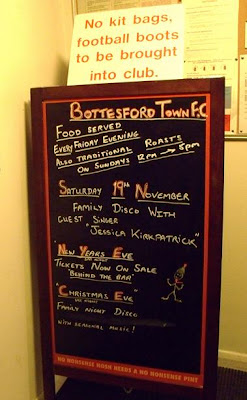 No kit bags,
football boots
to be brought
into club.
BOTTESFORD TOWN F.C
FOOD SERVED
EVERY FRIDAY EVENING
ALSO TRADITIONAL ROASTS
ON SUNDAYS 12PM → 5PM
SATURDAY 19TH NOVEMBER
FAMILY DISCO WITH
GUEST SINGER
"JESSICA KIRKPATRICK"
"NEW YEARS EVE"
TICKETS NOW ON SALE
BEHIND THE BAR
"CHRISTMAS EVE"
FAMILY NIGHT DISCO
WITH SEASONAL MUSIC!
NO NONSENSE MASH NEEDS A NO NONSENSE PINT